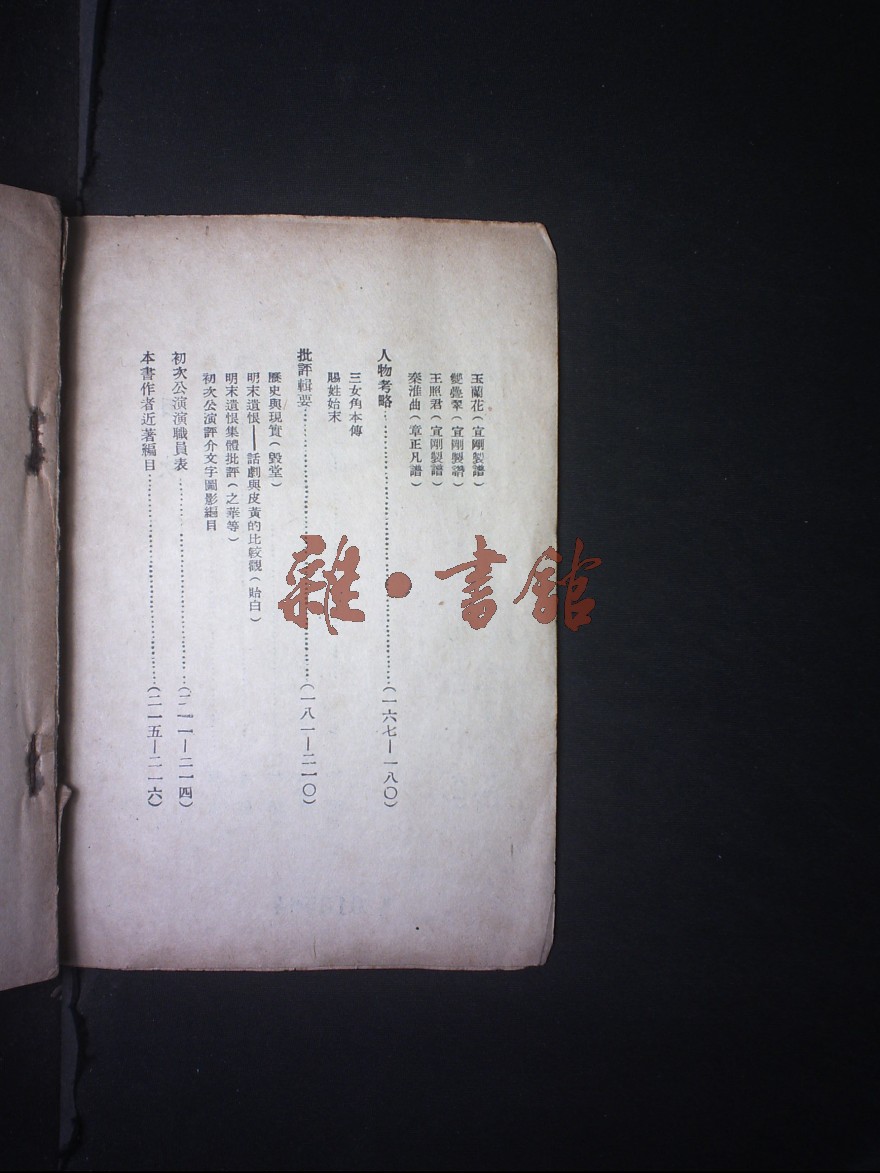 玉蘭花(宣剛製譜)
雙疊翠(宣剛製譜)
王照君(宣剛製譜)
秦淮曲(章正凡譜)
人物考略……(一六七—一八〇)
三女角本傳
賜姓始末
批評輯要……(一八一—二一〇)
歷史與現實(毀堂)
明末遺恨——話劇與皮黃的比較觀(貽白)
明末遺恨集體批評(之華等)
初次公演評介文字圖影編目
初次公演演職員表……(二一一—二一四)
本書作者近著編目……(二一五—二一六)
雜·書館